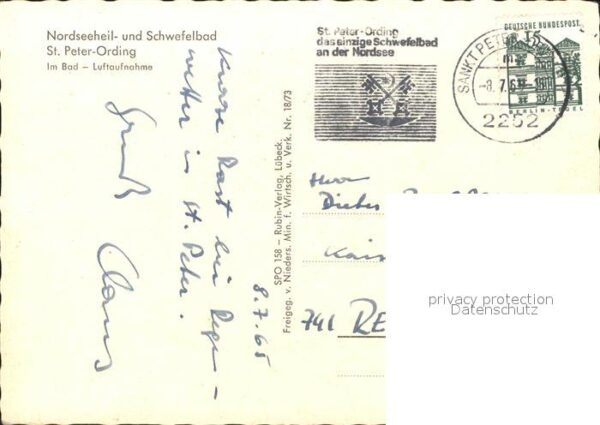 Nordseeheil- und Schwefelbad
St. Peter-Ording
Im Bad – Luftaufnahme
Kurze Rast bei Regen-
wetter in St. Peter.
Gruß
Claus
8.7.65
SPO 158 – Rubin-Verlag, Lübeck
Freigeg. v. Nieders. Min. f. Wirtsch. u. Verk. Nr. 18/73
St. Peter-Ording
das einzige Schwefelbad
an der Nordsee
SANKT PETER
-8.7.65
2252
DEUTSCHE BUNDESPOST
15
BERLIN-TEGEL
Herrn
Dieter
741 RE
privacy protection
Datenschutz